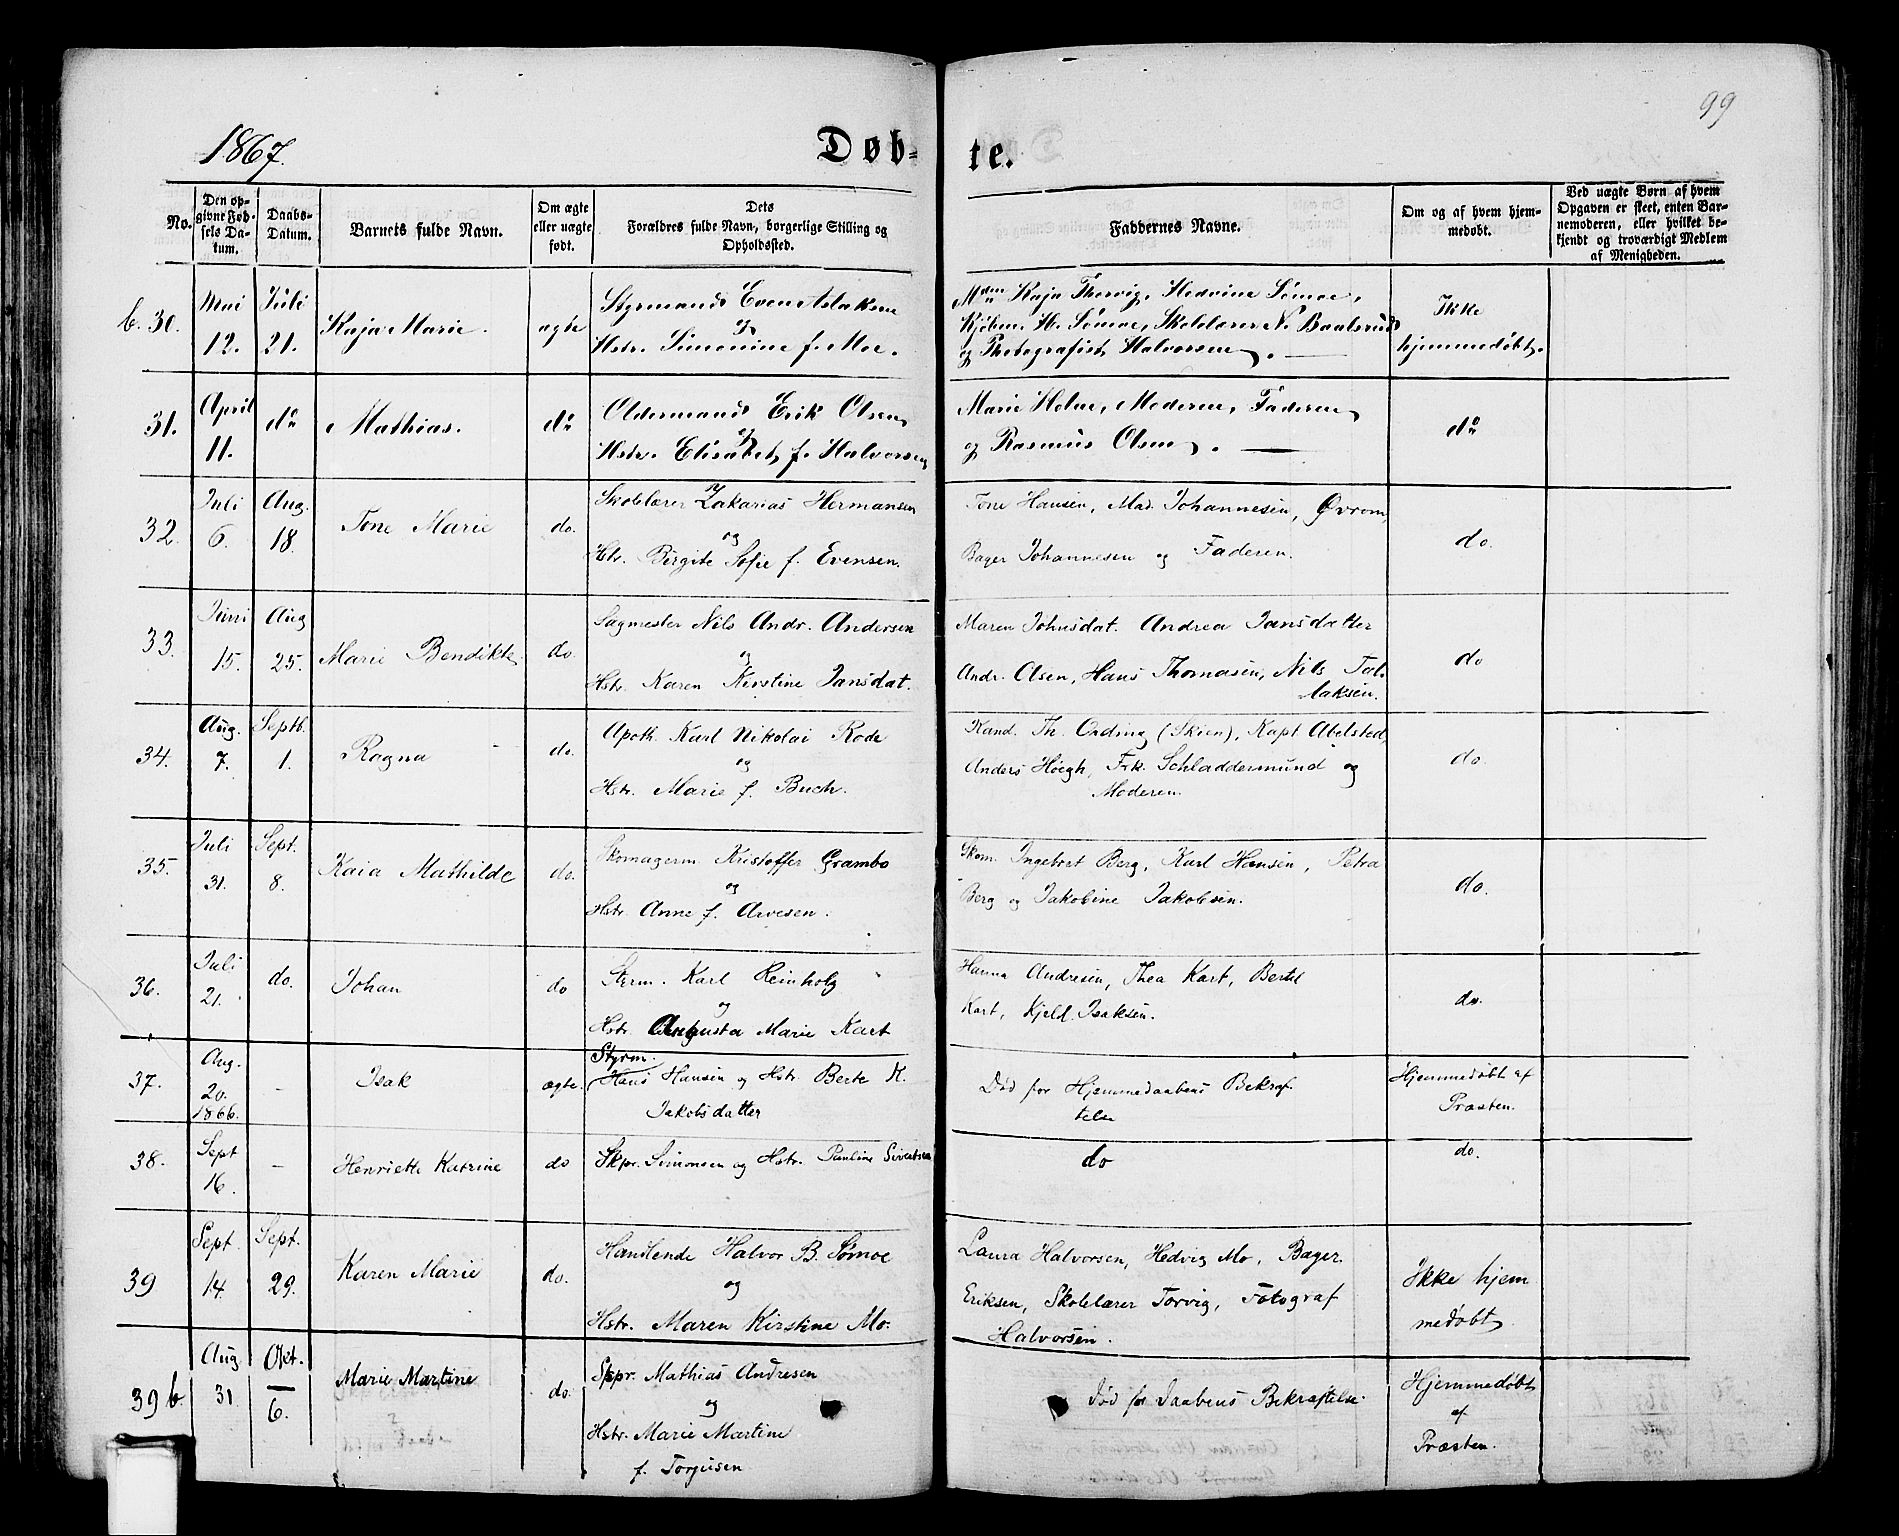 99
1867.
Døb- te.
No.
Den op-
givne Fød-
sels Da-
tum.
Daabs-
Datum.
Barnets fulde Navn.
Om ægte
eller uægte
født.
Dets
Forældres fulde Navn, borgerlige Stilling og
Opholdssted.
Faddernes Navne.
Om og af hvem hjem-
medøbt.
Ved uægte Børn af hvem
Opgaven er skeet, enten Bar-
nemoderen, eller hvilket be-
kjendt og troværdigt Medlem
af Menigheden.
b. 30. Mai 12. Juli 21. Kaja Marie. ægte
Styrmand Even Aslaksen
og
Hstr. Simonine f. Moe.
Mden Kaja Thorvig, Hedvine Sømoe,
Kjøbm. H. Sømoe, Skolelærer N. Baalsrud
og Photografist Halvorsen.
Ikke
hjemmedøbt.
31. April 11. do Mathias. do
Oldermand Erik Olsen
og
Hstr. Elisabet f. Halvorsen
Marie Holm, Moderen, Faderen
og Rasmus Olsen.
do
32. Juli 6. Aug. 18. Tone Marie do.
Skolelærer Zakarias Hermansen
og
Htr. Birgite Sofie f. Evensen.
Tone Hansen, Mad. Johannesen, Øvrom,
Bager Johannesen og Faderen.
do.
33. Juni 15. Aug 25. Marie Bendikte do.
Sagmester Nils Andr. Andersen
og
Hstr. Karen Kirstine Jansdat.
Maren Johnsdat. Andrea Jansdatter
Andr. Olsen, Hans Thomasen, Nils Tol-
laksen.
do
34. Aug. 7. Septb. 1. Ragna do.
Apoth. Karl Nikolai Rode
og
Hstr. Marie f. Buch.
Kand. Th. Ording (Skien), Kapt Abelsted,
Anders Höegh, Frk. Schladdermund og
Moderen.
do.
35. Juli 31. Sept. 8. Kaia Mathilde do.
Skomagerm. Kristoffer Grambo
og
Hstr. Anne f. Arvesen.
Skom. Ingebort Berg, Karl Hansen, Petra
Berg og Jakobine Jakobsen.
do.
36. Juli 21. do. Johan do
Styrm. Karl Reinholg
og
Hstr. Augusta Marie Kart
Hanna Andresen, Thea Kart, Bertel
Kart, Kjeld. Isaksen.
do.
37. Aug. 20. 1866. - Isak ægte.
Styrm.
Hans Hansen og Hstr. Berte K.
Jakobsdatter
Død før Hjemmedaabens Bekræf-
telse
Hjemmedøbt af
Præsten.
38. Sept 16. - Henriette Katrine do
Skpr. Simonsen og Hstr. Pauline Sivertsen
do
do.
39 Sept. 14. Sept. 29. Karen Marie do.
Handlende Halvor B. Sømoe
og
Hstr. Maren Kirstine Mo.
Laura Halvorsen, Hedvig Mo, Bager
Eriksen, Skolelærer Torvig, Fotograf
Halvorsen.
Ikke hjem
medøbt
39 b. Aug 31. Okt. 6. Marie Martine do.
Skpr. Mathias Andresen
og
Hstr. Marie Martine
f. Torjusen
Død før Daabens Bekræftelse
Hjemmedøbt
af
Præsten.